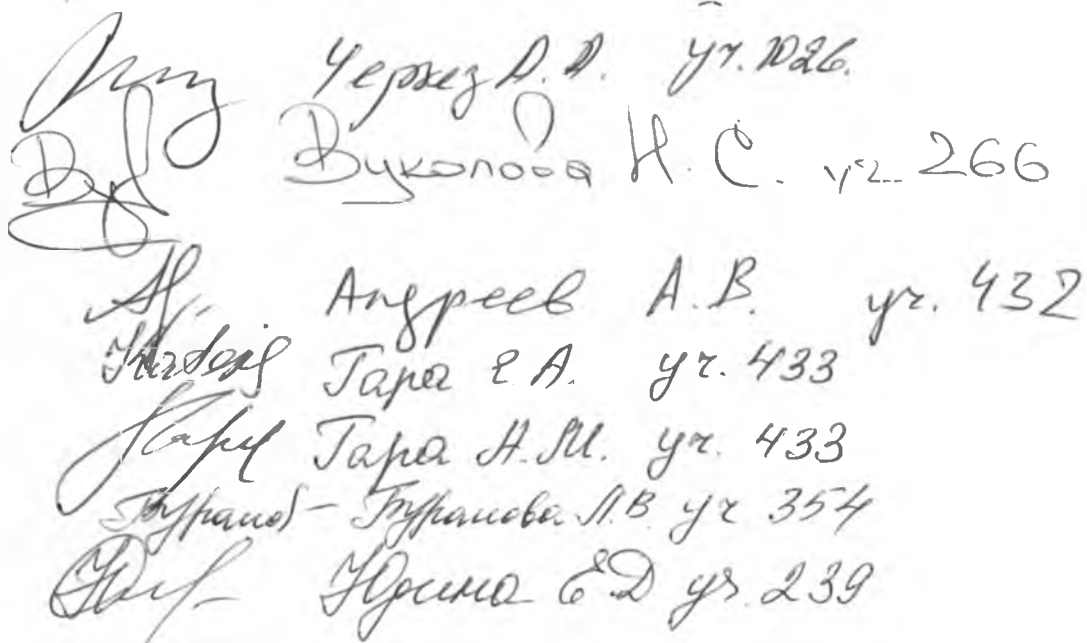 Черкез А. А. уч. 1026.
Вуколова Н. С. уч. 266
Андреев А. В. уч. 432
Гара Е. А. уч. 433
Гара Н. М. уч. 433
Буранова Л. В. уч 354
Юдина Е Д уч. 239